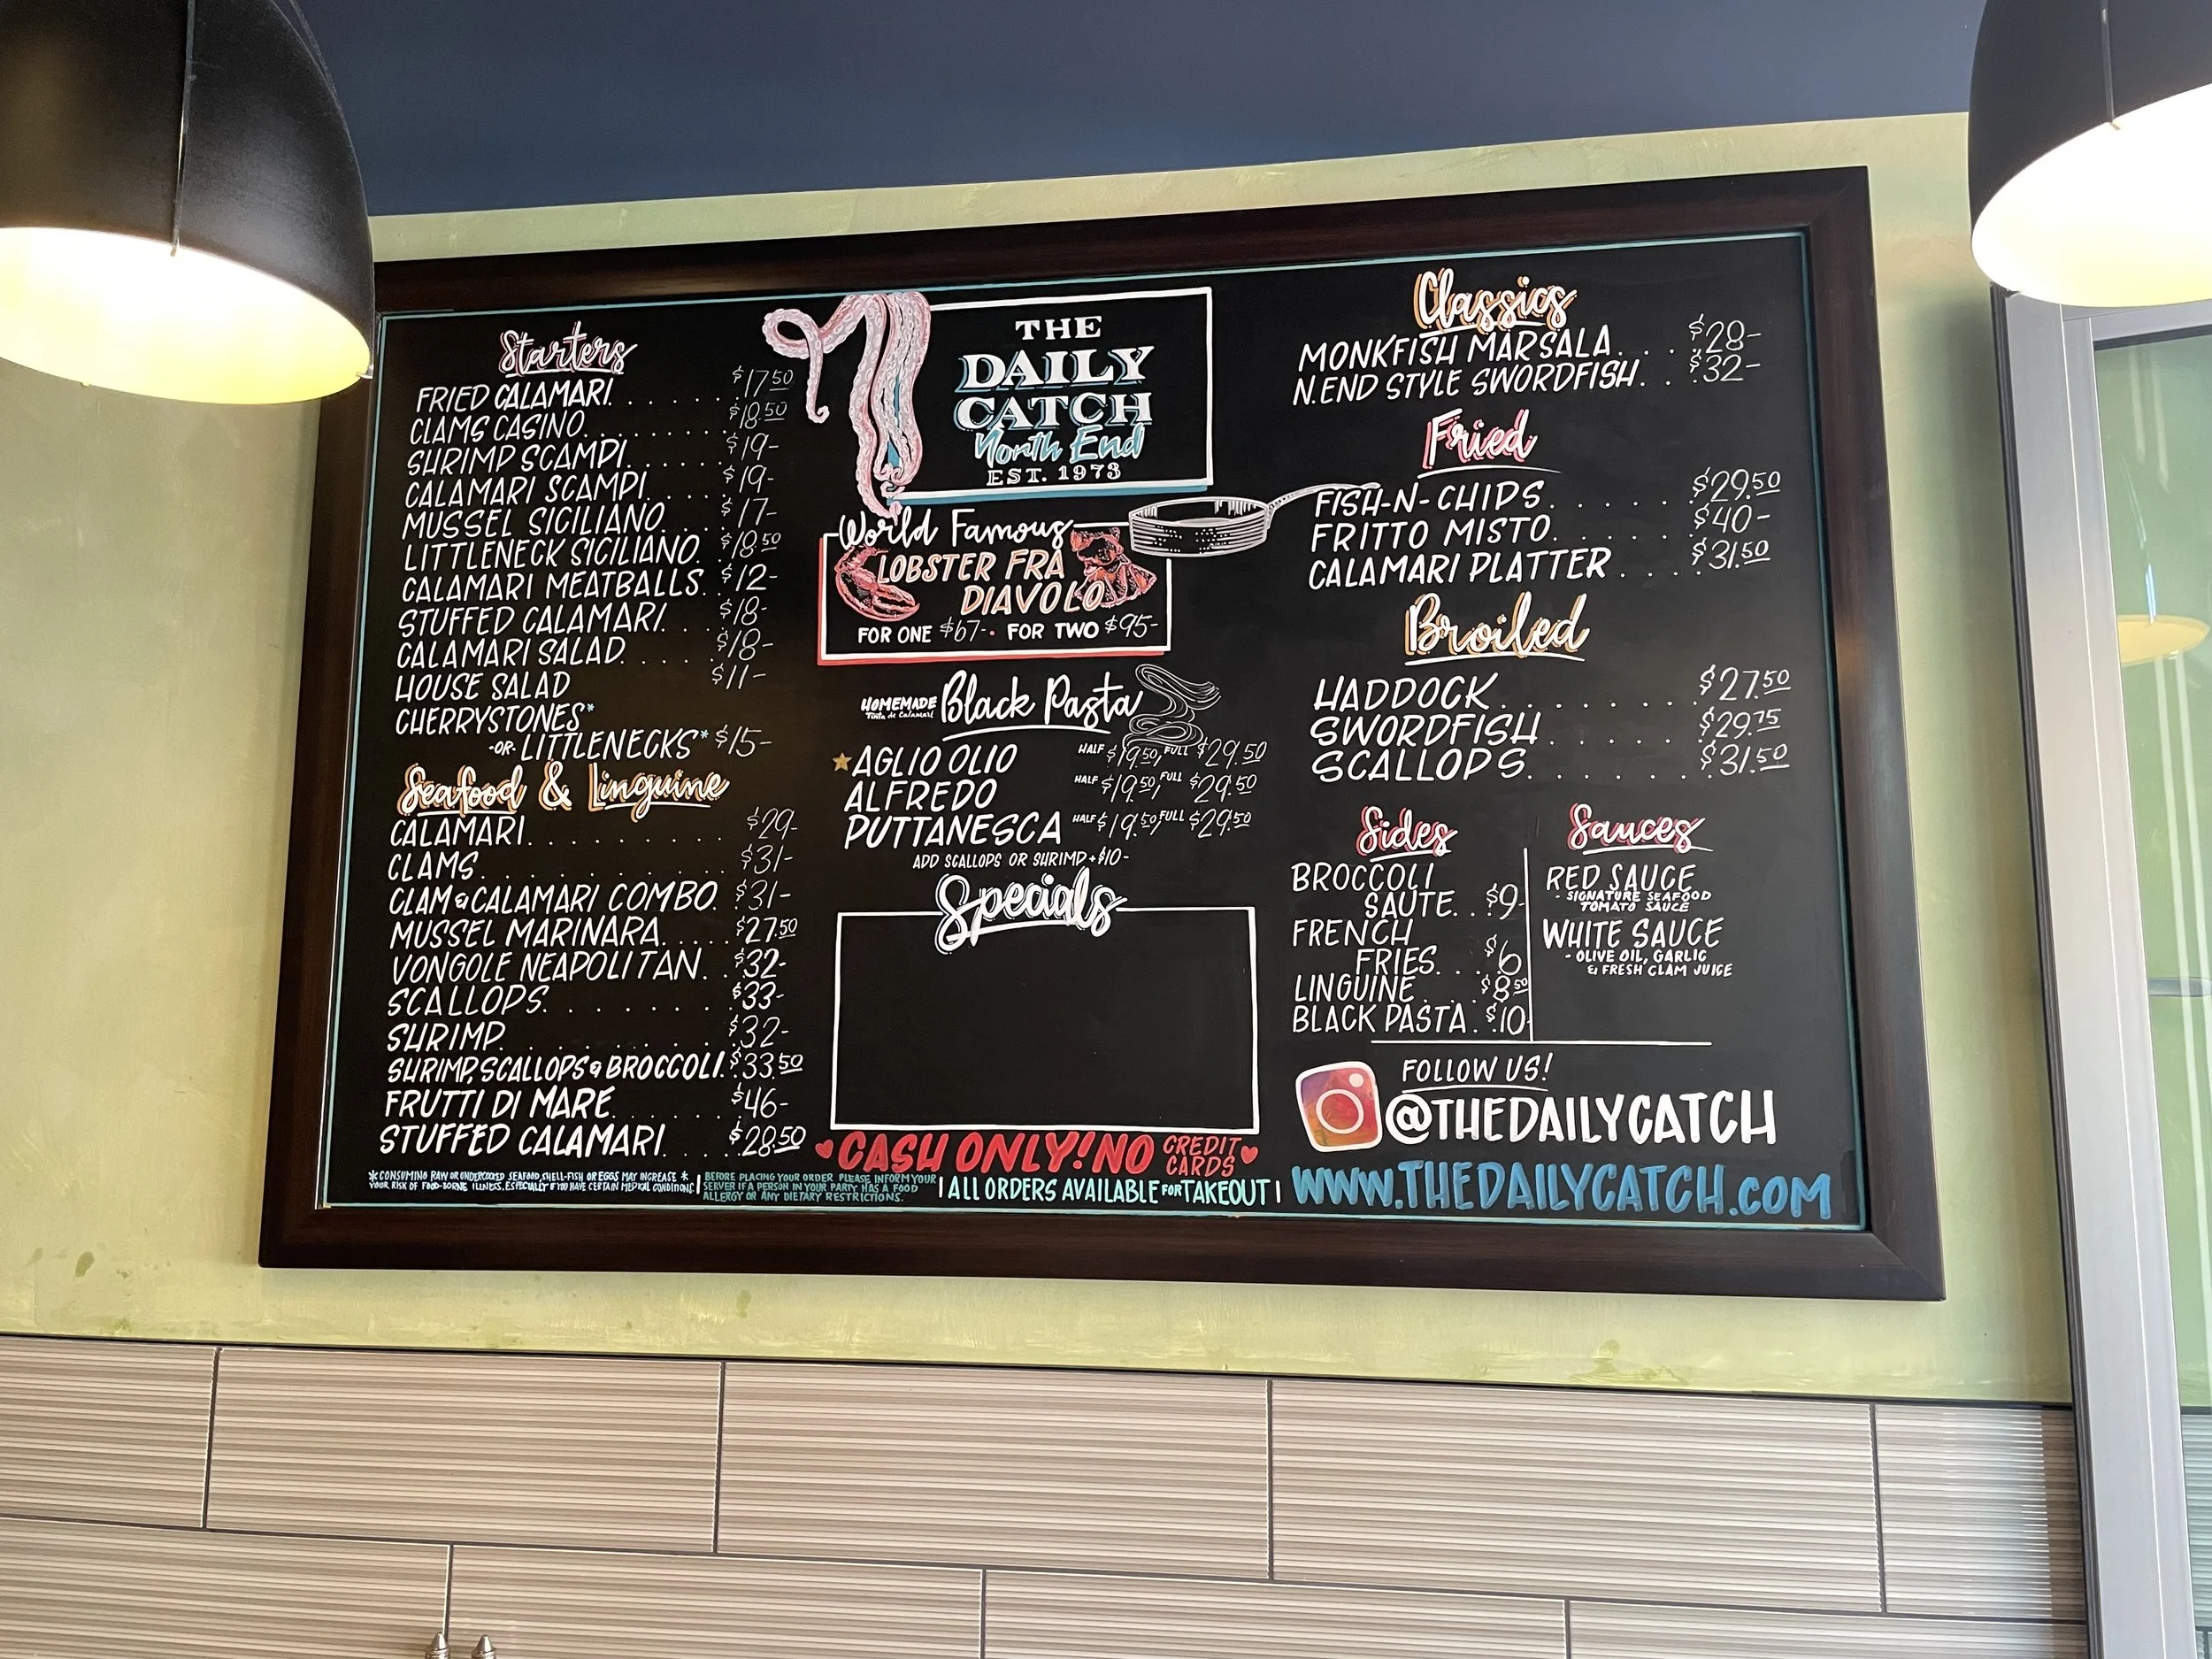 Starters
FRIED CALAMARI. . . . . . . $17.50
CLAMS CASINO. . . . . . . . $18.50
SHRIMP SCAMPI. . . . . . $19-
CALAMARI SCAMPI. . . . . $19-
MUSSEL SICILIANO. . . . $17-
LITTLENECK SICILIANO. . $18.50
CALAMARI MEATBALLS. . $12-
STUFFED CALAMARI. . . $18-
CALAMARI SALAD. . . . . $18-
HOUSE SALAD $11-
CHERRYSTONES*
-OR- LITTLENECKS* $15-
Seafood & Linguine
CALAMARI. . . . . . . . . $29-
CLAMS. . . . . . . . . . . $31-
CLAM & CALAMARI COMBO. $31-
MUSSEL MARINARA. . . . . $27.50
VONGOLE NEAPOLITAN. . $32-
SCALLOPS. . . . . . . . $33-
SHRIMP. . . . . . . . . . $32-
SHRIMP, SCALLOPS & BROCCOLI. $33.50
FRUTTI DI MARE. . . . . . $46-
STUFFED CALAMARI. . . . $28.50
*CONSUMING RAW OR UNDERCOOKED SEAFOOD, SHELL-FISH OR EGGS MAY INCREASE *
YOUR RISK OF FOOD-BORNE ILLNESS, ESPECIALLY IF YOU HAVE CERTAIN MEDICAL CONDITIONS.
THE
DAILY
CATCH
North End
EST. 1973
World Famous
LOBSTER FRA
DIAVOLO
FOR ONE $67- • FOR TWO $95-
HOMEMADE Black Pasta
Tinta de Calamari
AGLIO OLIO HALF $19.50, FULL $29.50
ALFREDO HALF $19.50, FULL $29.50
PUTTANESCA HALF $19.50, FULL $29.50
ADD SCALLOPS OR SHRIMP + $10-
Specials
CASH ONLY! NO CREDIT CARDS
BEFORE PLACING YOUR ORDER PLEASE INFORM YOUR
SERVER IF A PERSON IN YOUR PARTY HAS A FOOD
ALLERGY OR ANY DIETARY RESTRICTIONS.
ALL ORDERS AVAILABLE FOR TAKEOUT
Classics
MONKFISH MARSALA. . . . $28-
N.END STYLE SWORDFISH. . . $32-
Fried
FISH-N-CHIPS. . . . . . $29.50
FRITTO MISTO. . . . . . $40-
CALAMARI PLATTER . . . . $31.50
Broiled
HADDOCK. . . . . . . . $27.50
SWORDFISH. . . . . . $29.75
SCALLOPS. . . . . . . $31.50
Sides
BROCCOLI
SAUTE. . $9-
FRENCH
FRIES. . . $6
LINGUINE. . . $8.50
BLACK PASTA. $10-
Sauces
RED SAUCE
- SIGNATURE SEAFOOD
TOMATO SAUCE
WHITE SAUCE
- OLIVE OIL, GARLIC
& FRESH CLAM JUICE
FOLLOW US!
@THEDAILYCATCH
WWW.THEDAILYCATCH.COM